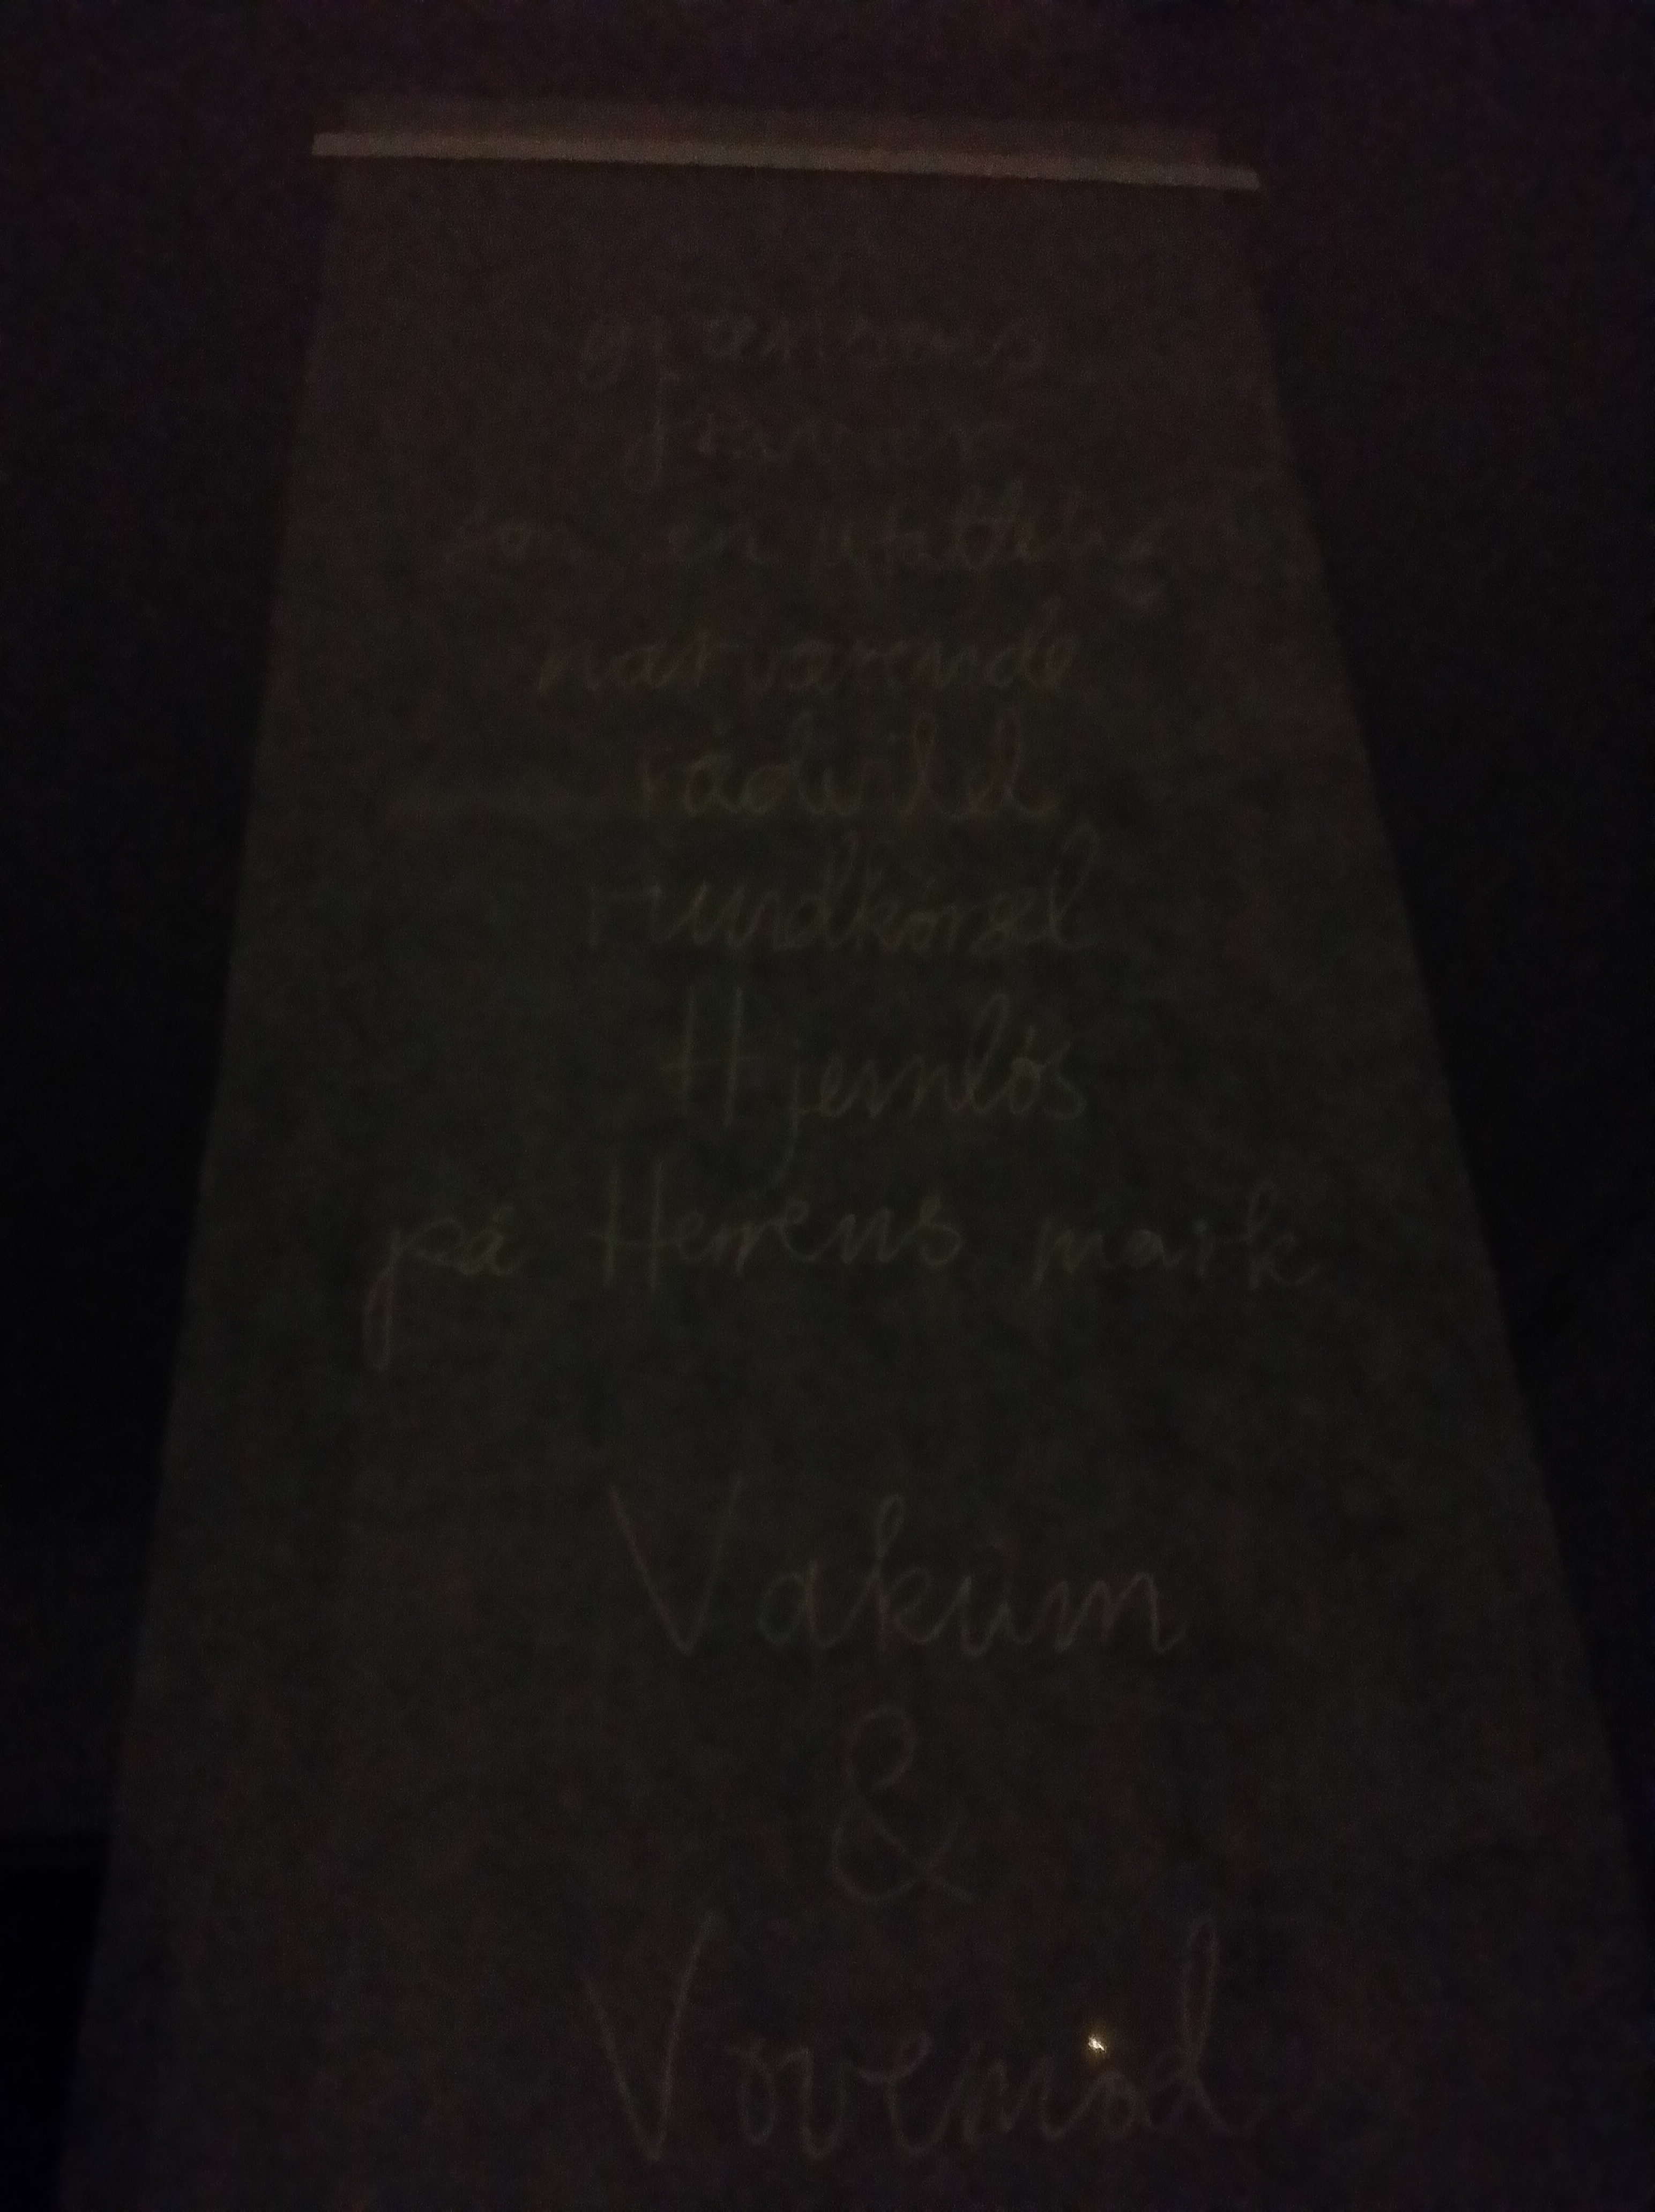 som en
nærværende
rådvild
rundkørsel
Hjernløs
på Herrens mark
Vakūm
&
Vovemod